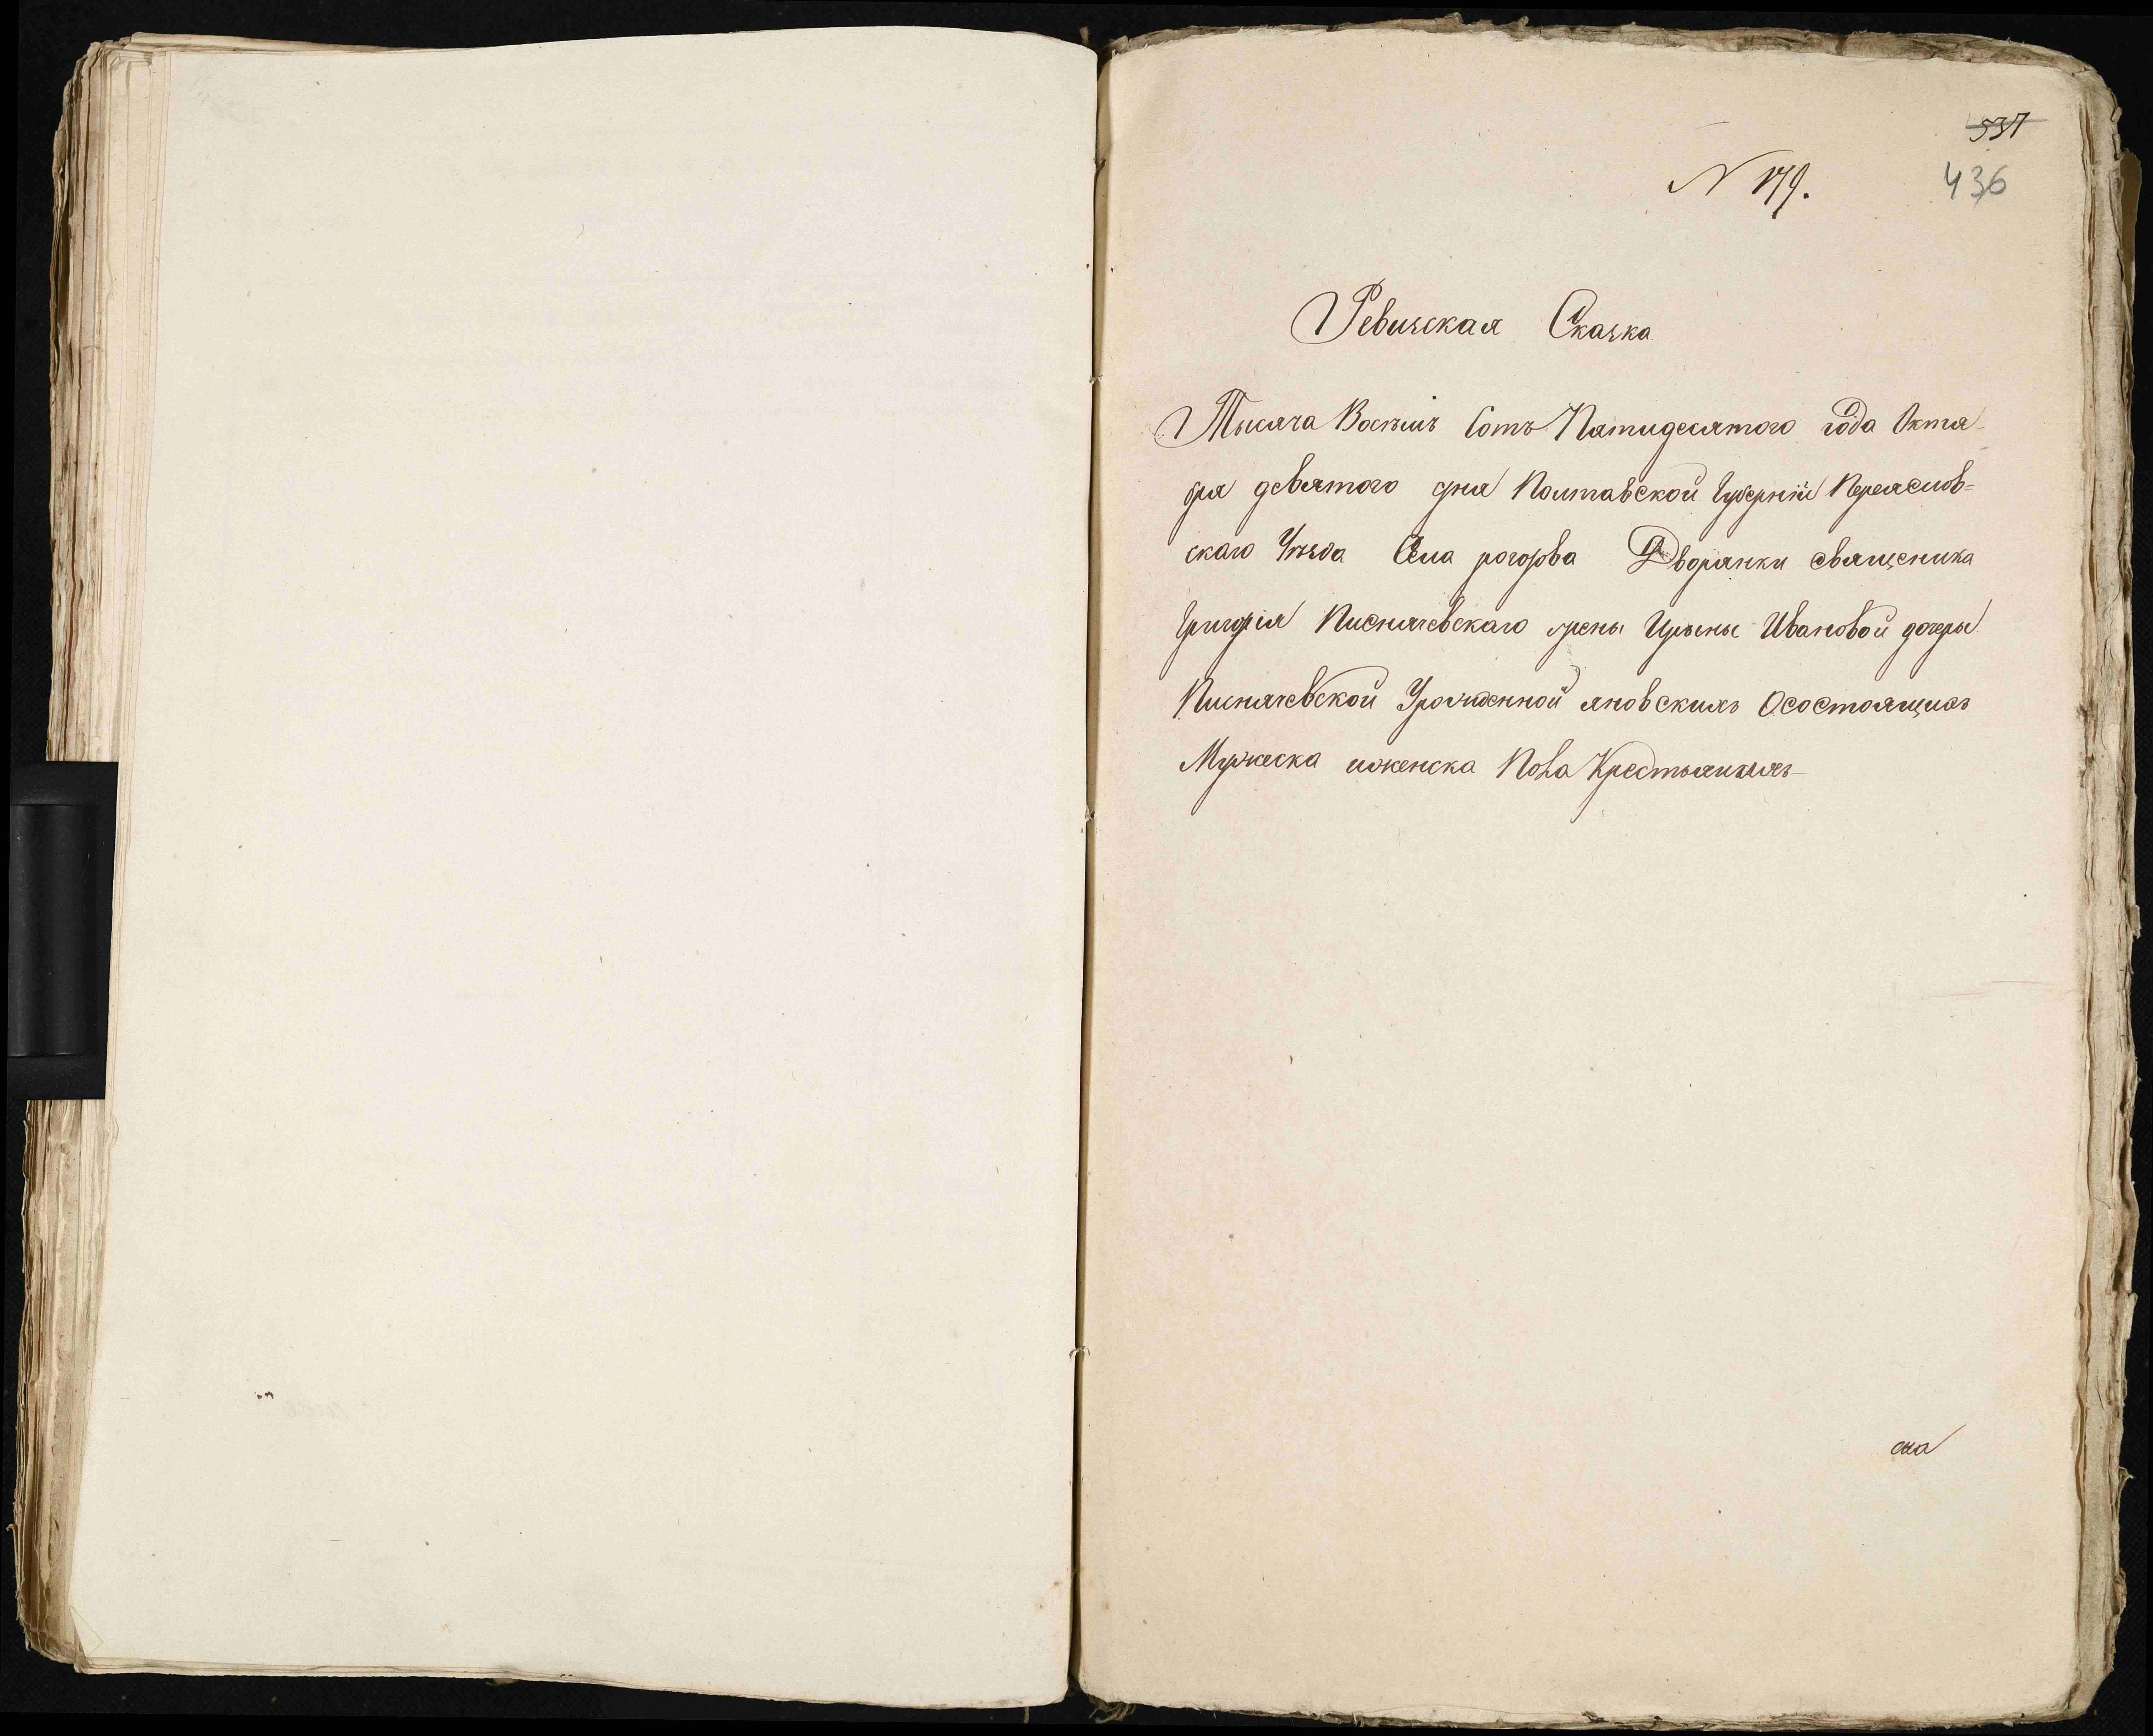 537
N 179.
436
Ревизская Сказка
Тысяча Восѣмъ Сотъ Пятидесятого года Октя-
бря девятого дня Полтавской Губерніи Переяслов=
скаго Уѣзда Села рогозова Дворянки священика
Григорія Писнячевскаго жены Ирыны Ивановой дочеры
Писнячевской Урожденной яновскихъ Осостоящихъ
Мужеска иженска Пола Крестьянъхъ